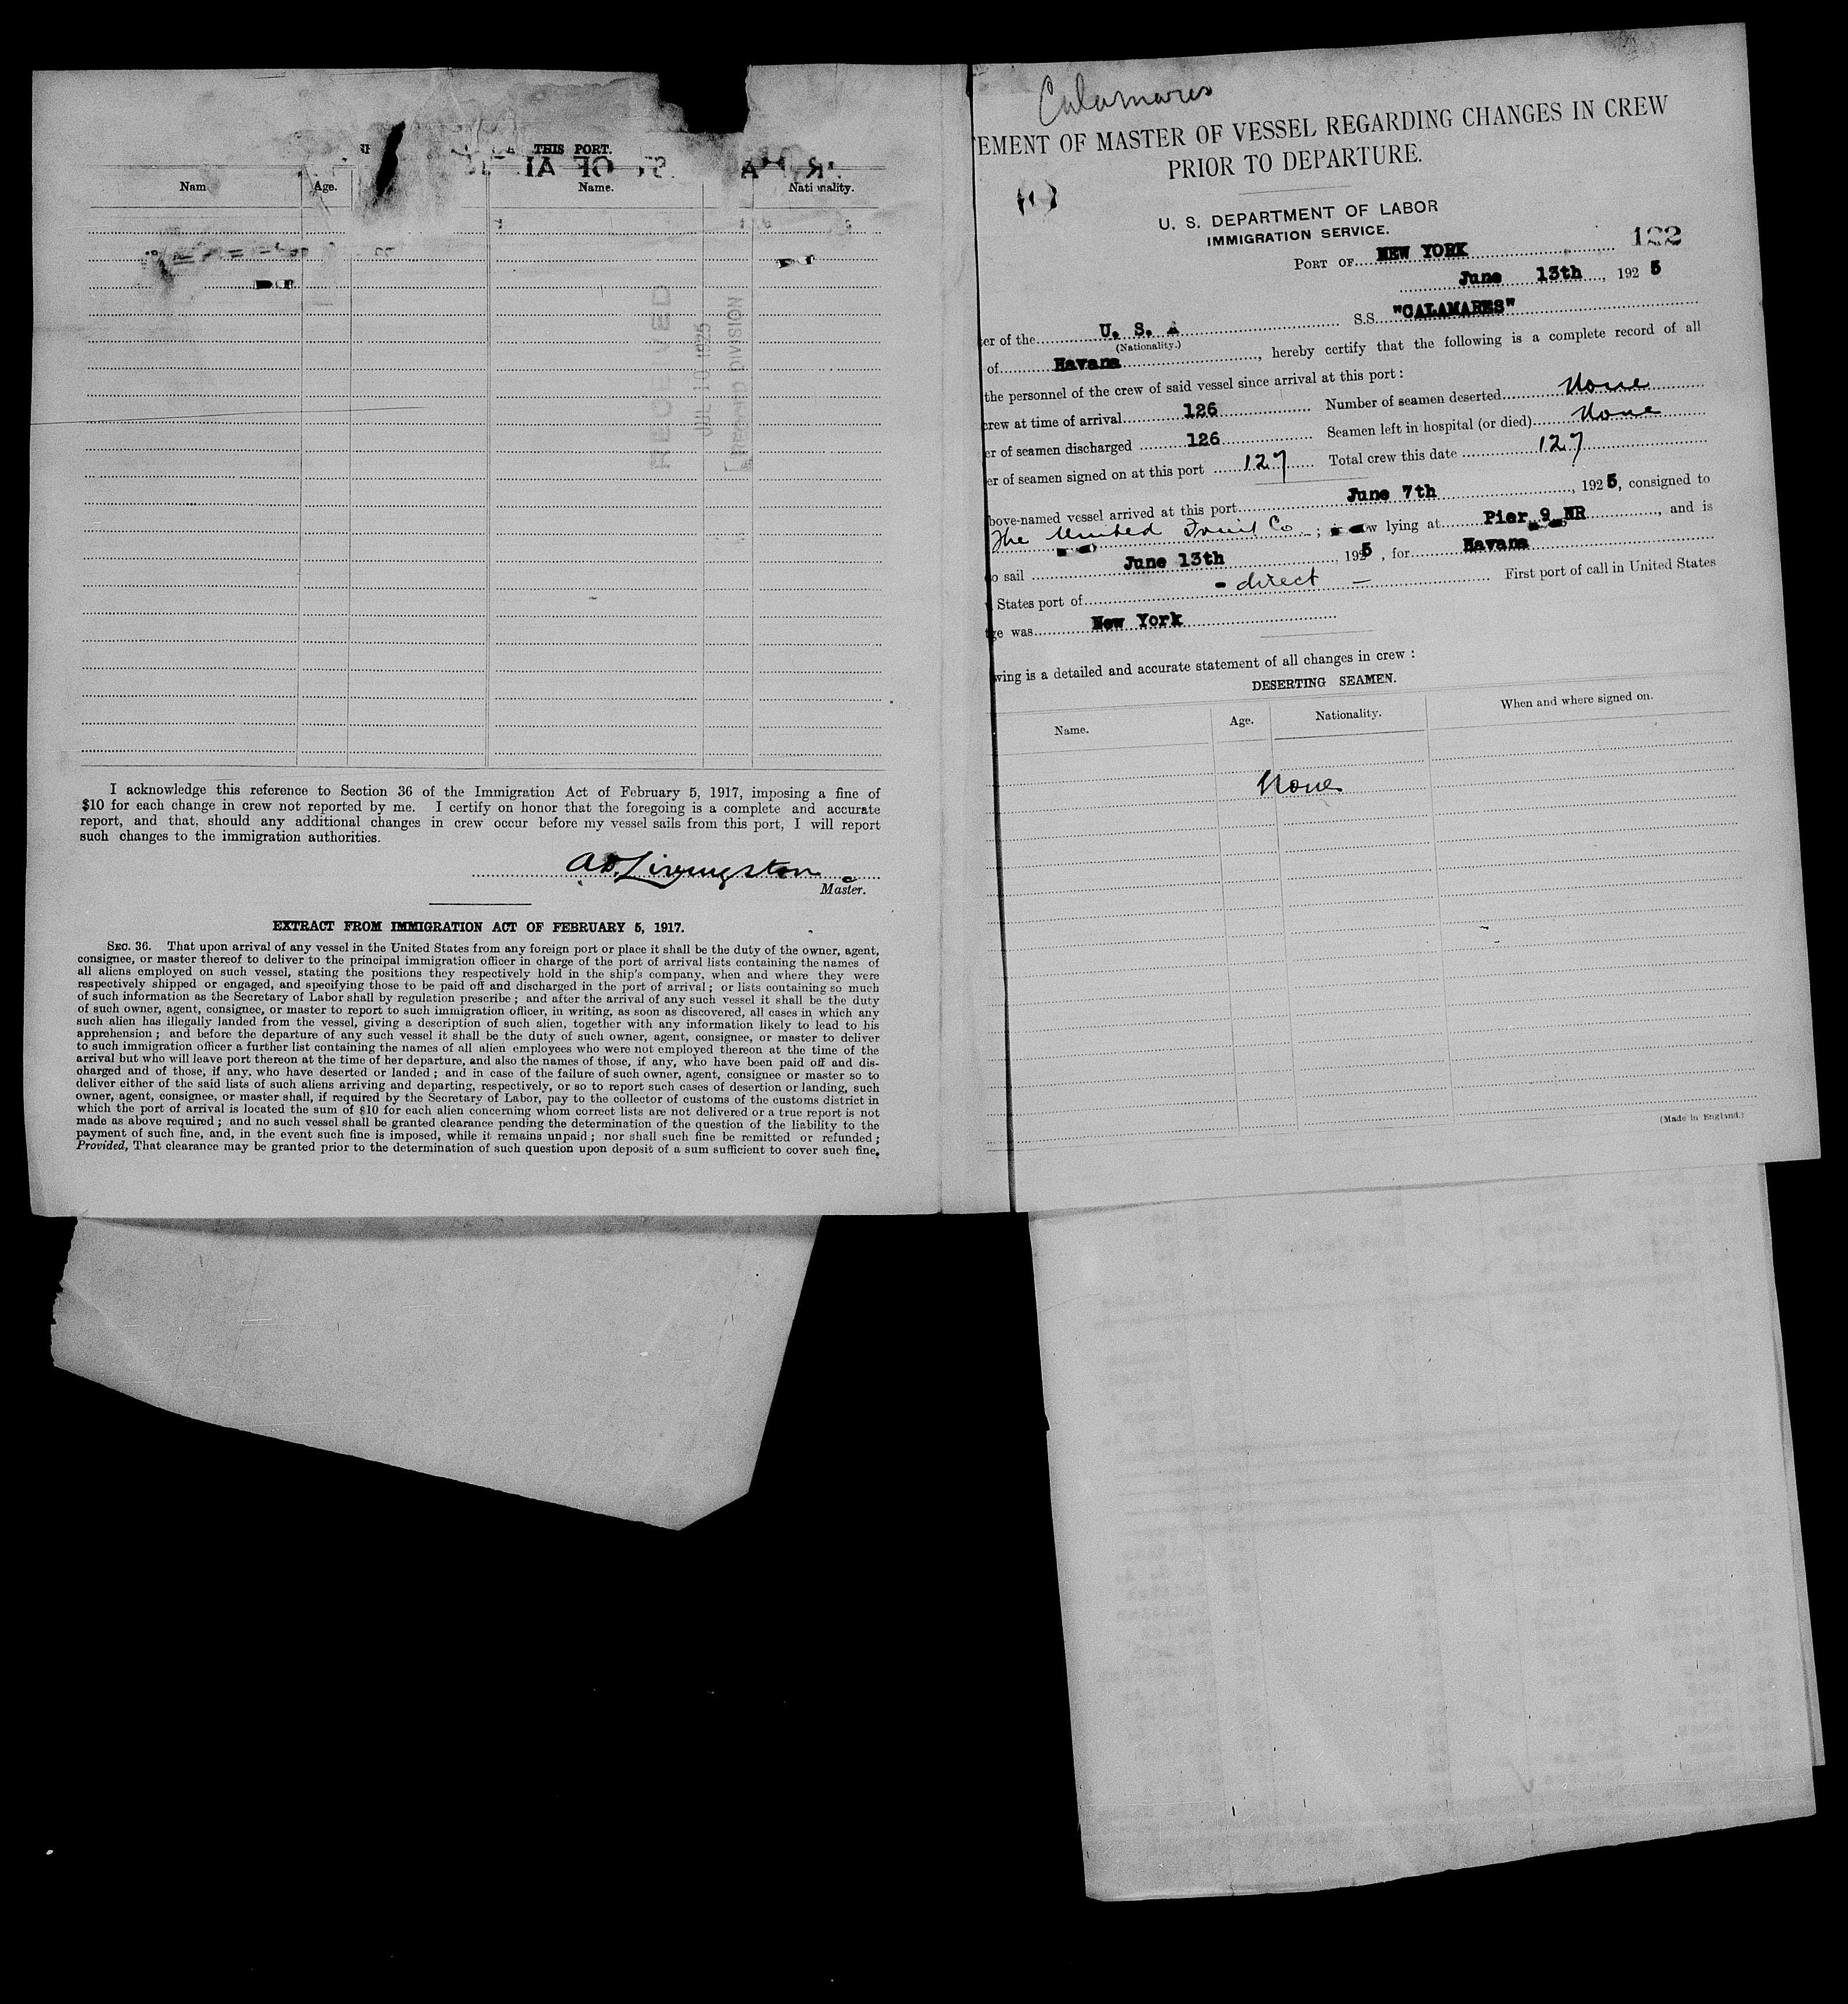 THIS PORT.
Nam Age. Name. Nationality.
RECEIVED
JUL 10 1925
DIVISION
I acknowledge this reference to Section 36 of the Immigration Act of February 5, 1917, imposing a fine of
$10 for each change in crew not reported by me. I certify on honor that the foregoing is a complete and accurate
report, and that, should any additional changes in crew occur before my vessel sails from this port, I will report
such changes to the immigration authorities.
Livingston
Master.
EXTRACT FROM IMMIGRATION ACT OF FEBRUARY 5, 1917.
SEC. 36. That upon arrival of any vessel in the United States from any foreign port or place it shall be the duty of the owner, agent,
consignee, or master thereof to deliver to the principal immigration officer in charge of the port of arrival lists containing the names of
all aliens employed on such vessel, stating the positions they respectively hold in the ship's company, when and where they were
respectively shipped or engaged, and specifying those to be paid off and discharged in the port of arrival; or lists containing so much
of such information as the Secretary of Labor shall by regulation prescribe; and after the arrival of any such vessel it shall be the duty
of such owner, agent, consignee, or master to report to such immigration officer, in writing, as soon as discovered, all cases in which any
such alien has illegally landed from the vessel, giving a description of such alien, together with any information likely to lead to his
apprehension; and before the departure of any such vessel it shall be the duty of such owner, agent, consignee, or master to deliver
to such immigration officer a further list containing the names of all alien employees who were not employed thereon at the time of the
arrival but who will leave port thereon at the time of her departure, and also the names of those, if any, who have been paid off and dis-
charged and of those, if any, who have deserted or landed; and in case of the failure of such owner, agent, consignee or master so to
deliver either of the said lists of such aliens arriving and departing, respectively, or so to report such cases of desertion or landing, such
owner, agent, consignee, or master shall, if required by the Secretary of Labor, pay to the collector of customs of the customs district in
which the port of arrival is located the sum of $10 for each alien concerning whom correct lists are not delivered or a true report is not
made as above required; and no such vessel shall be granted clearance pending the determination of the question of the liability to the
payment of such fine, and, in the event such fine is imposed, while it remains unpaid; nor shall such fine be remitted or refunded;
Provided, That clearance may be granted prior to the determination of such question upon deposit of a sum sufficient to cover such fine.
Calamares
EMENT OF MASTER OF VESSEL REGARDING CHANGES IN CREW
PRIOR TO DEPARTURE.
U. S. DEPARTMENT OF LABOR
IMMIGRATION SERVICE.
122
PORT OF NEW YORK
June 13th, 1925
er of the U. S. A S.S. "CALAMARES"
(Nationality.)
of Havana, hereby certify that the following is a complete record of all
the personnel of the crew of said vessel since arrival at this port:
crew at time of arrival 126 Number of seamen deserted None
er of seamen discharged 126 Seamen left in hospital (or died) None
er of seamen signed on at this port 127 Total crew this date 127
bove-named vessel arrived at this port June 7th, 1925, consigned to
The United Fruit Co.; w lying at Pier 9 NR, and is
o sail June 13th, 1925, for Havana
States port of - direct - First port of call in United States
ge was New York
wing is a detailed and accurate statement of all changes in crew:
DESERTING SEAMEN.
Name. Age. Nationality. When and where signed on.
None
(Made in England.)